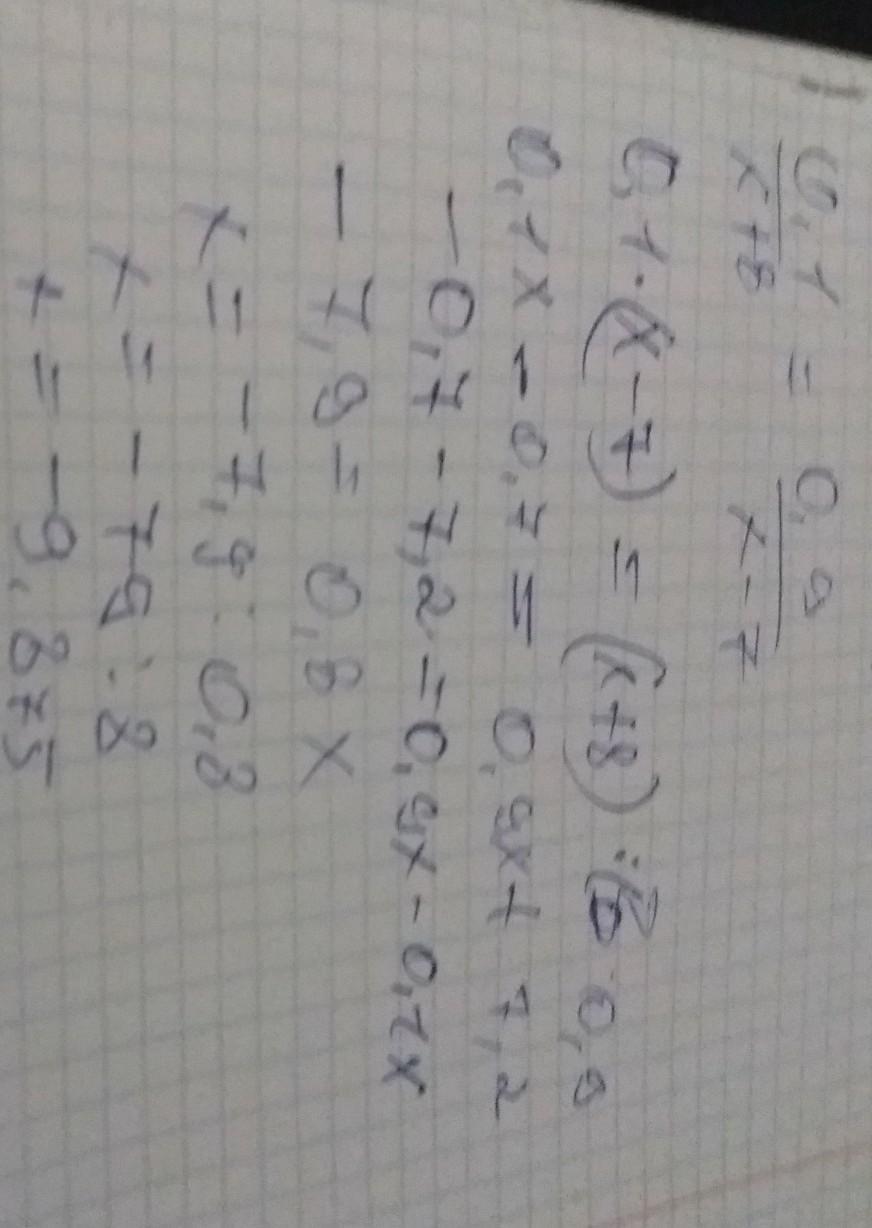 0,1/x+8 = 0,9/x-7
0,1·(x-7) = (x+8)·0,9
0,1x - 0,7 = 0,9x + 7,2
-0,7 - 7,2 = 0,9x - 0,1x
-7,9 = 0,8x
x = -7,9 : 0,8
x = -79 : 8
x = -9,875